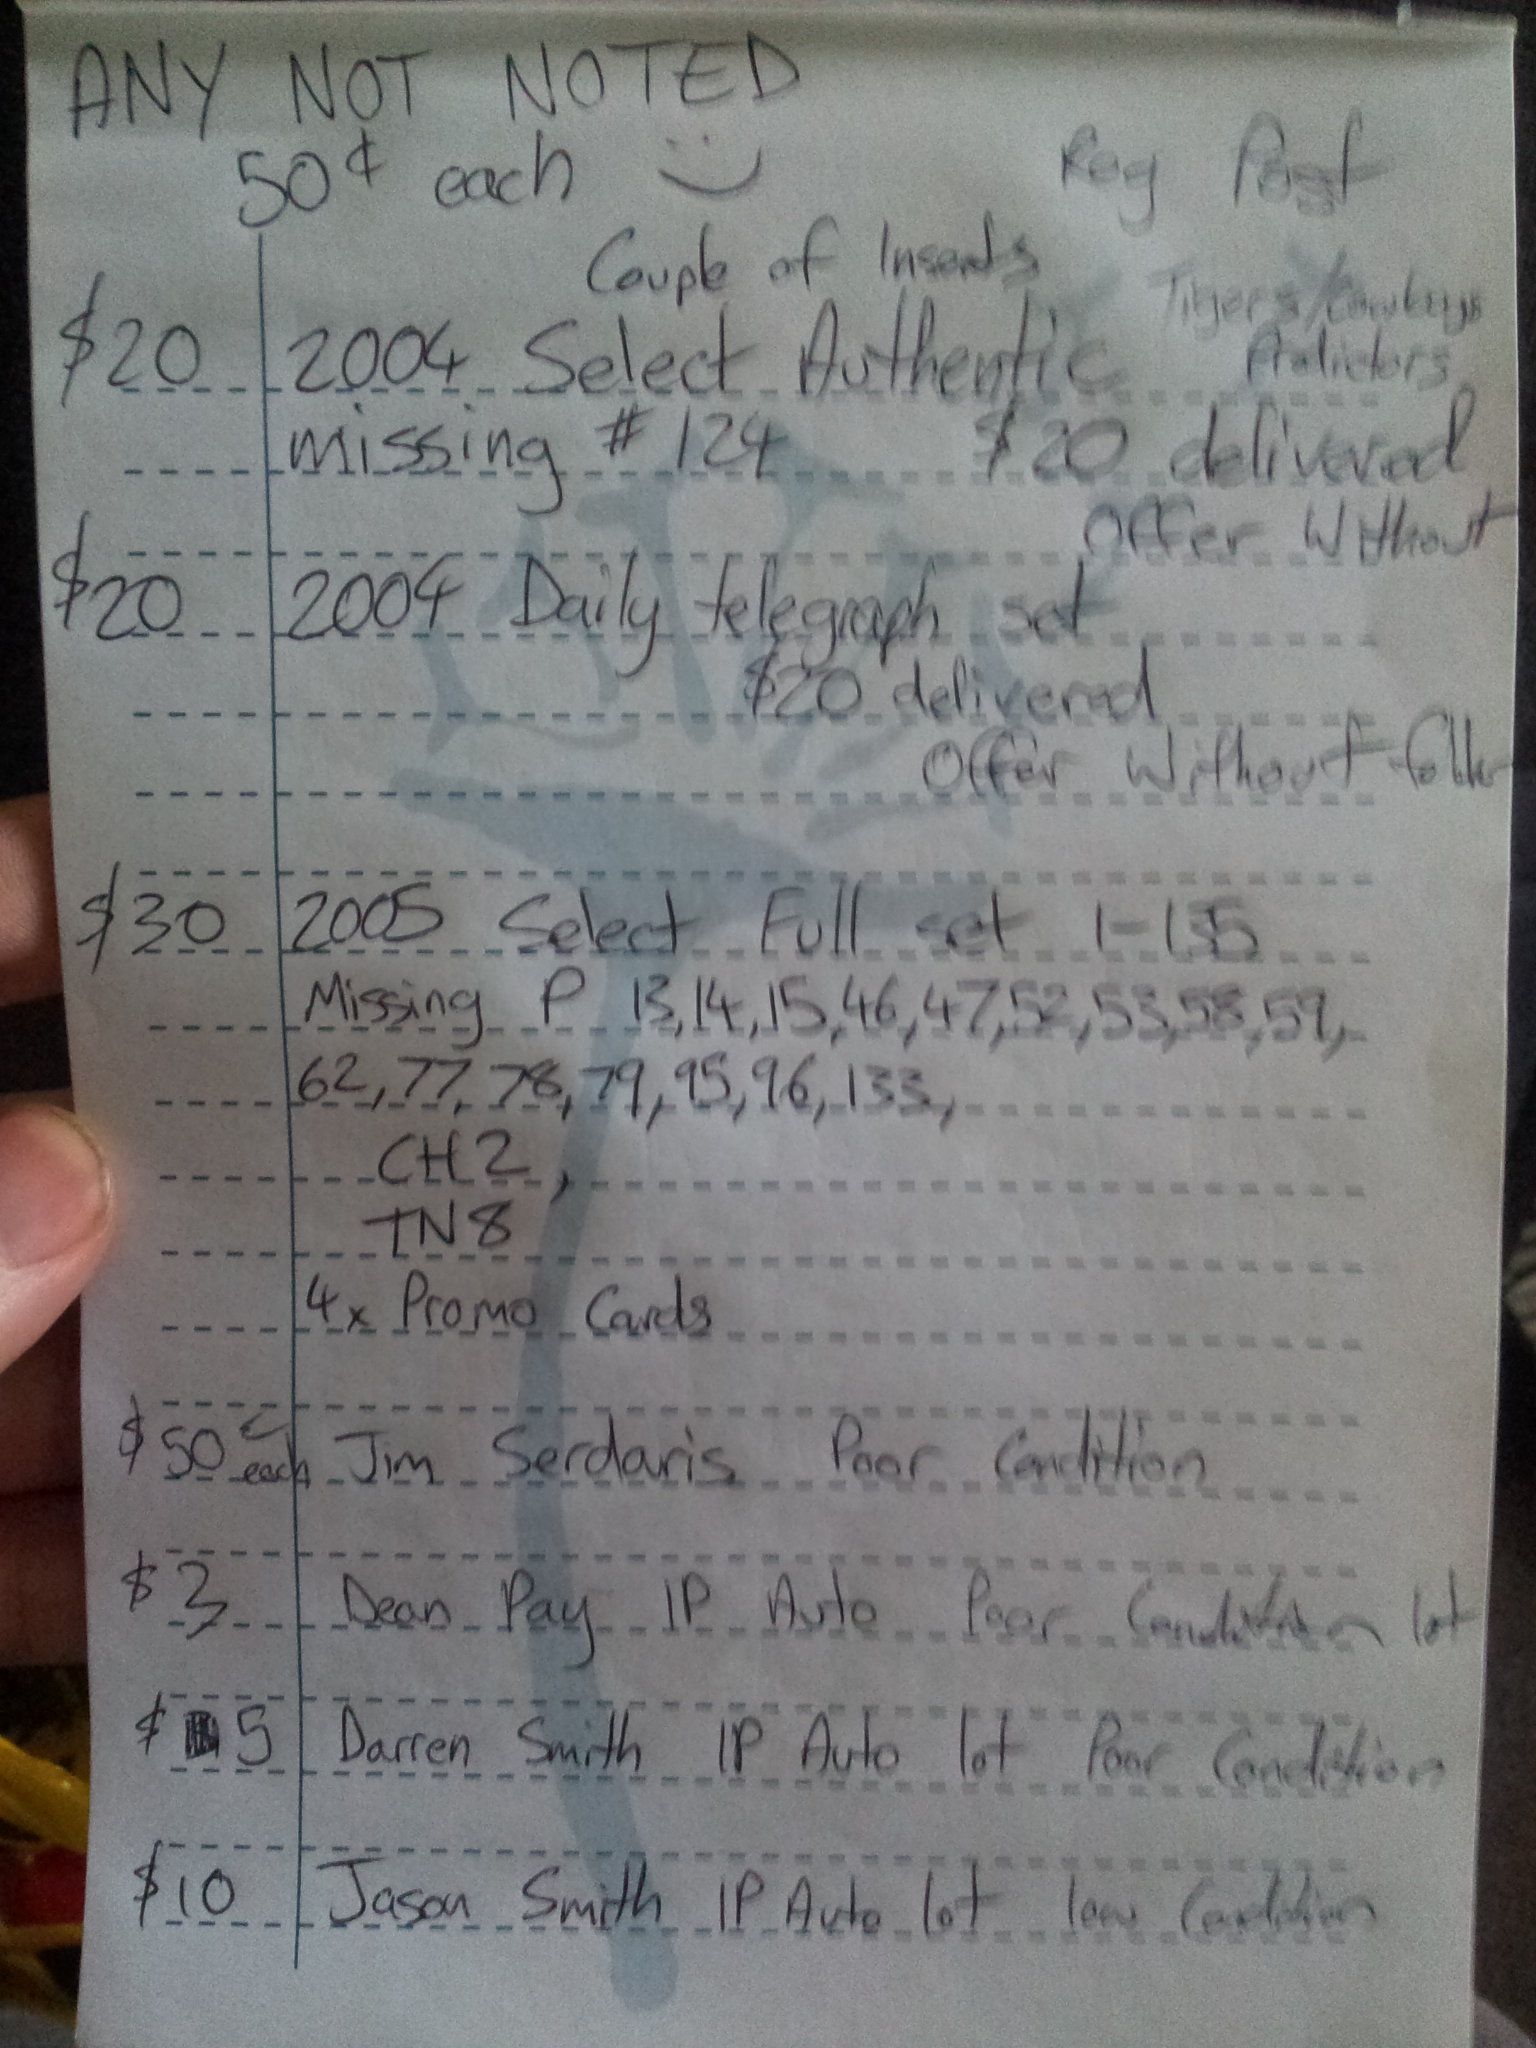 ANY NOT NOTED
50¢ each :)
Reg Post
Couple of Inserts
Tigers/Cowboys
$20 2004 Select Authentic
missing #124 $20 delivered
Offer Without
$20 2004 Daily telegraph set
$20 delivered
Offer Without
$30 2005 Select Full set 1-135
Missing P 13,14,15,46,47,52,53,58,59,
62,77,78,79,95,96,133,
CH2,
TN8
4x Promo Cards
$50c each Jim Serdaris Poor Condition
$3 Dean Pay IP Auto Poor Condition lot
$5 Darren Smith IP Auto lot Poor Condition
$10 Jason Smith IP Auto lot low Condition